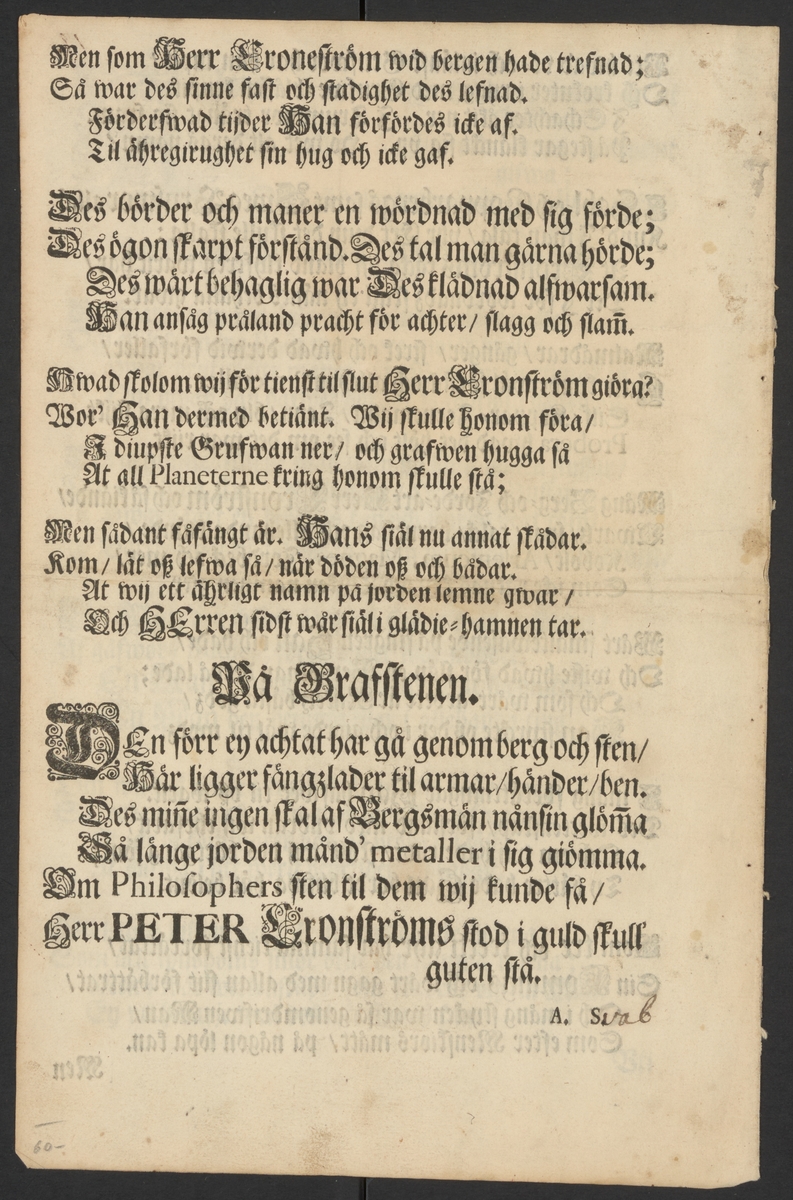 Men som Herr Croneström wid bergen hade trefnad;
Så war des sinne fast och stadighet des lefnad.
Förderfwad tijder Han förfördes icke af.
Til ähregirughet sin hug och icke gaf.
Des börder och maner en wördnad med sig förde;
Des ögon skarpt förstånd. Des tal man gärna hörde;
Des wärt behaglig war Des klädnad alfwarsam.
Han ansåg prål and pracht för achter/ slagg och slam̃.
Hwad skolom wij för tienst til slut Herr Cronström giöra?
Wor' Han dermed betiänt. Wij skulle honom föra/
I diupste Grufwan ner/ och grafwen hugga så
At all Planeterne kring honom skulle stå;
Men sådant fåfängt är. Hans siäl nu annat skådar.
Kom/ lät oß lefwa så/ när döden oß och bådar.
At wij ett ährligt namn på jorden lemne qwar/
Och HErren sidst wår siäl i glädie-hamnen tar.
På Grafstenen.
DEn förr ey achtat har gå genom berg och sten/
Här ligger fängzlader til armar/ händer/ ben.
Des miñe ingen skal af Bergsmän nånsin glöm̃a
Så länge jorden månd' metaller i sig giömma.
Om Philosophers sten til dem wij kunde få/
Herr PETER Cronströms stod i guld skull'
guten stå.
A. Swab
60-